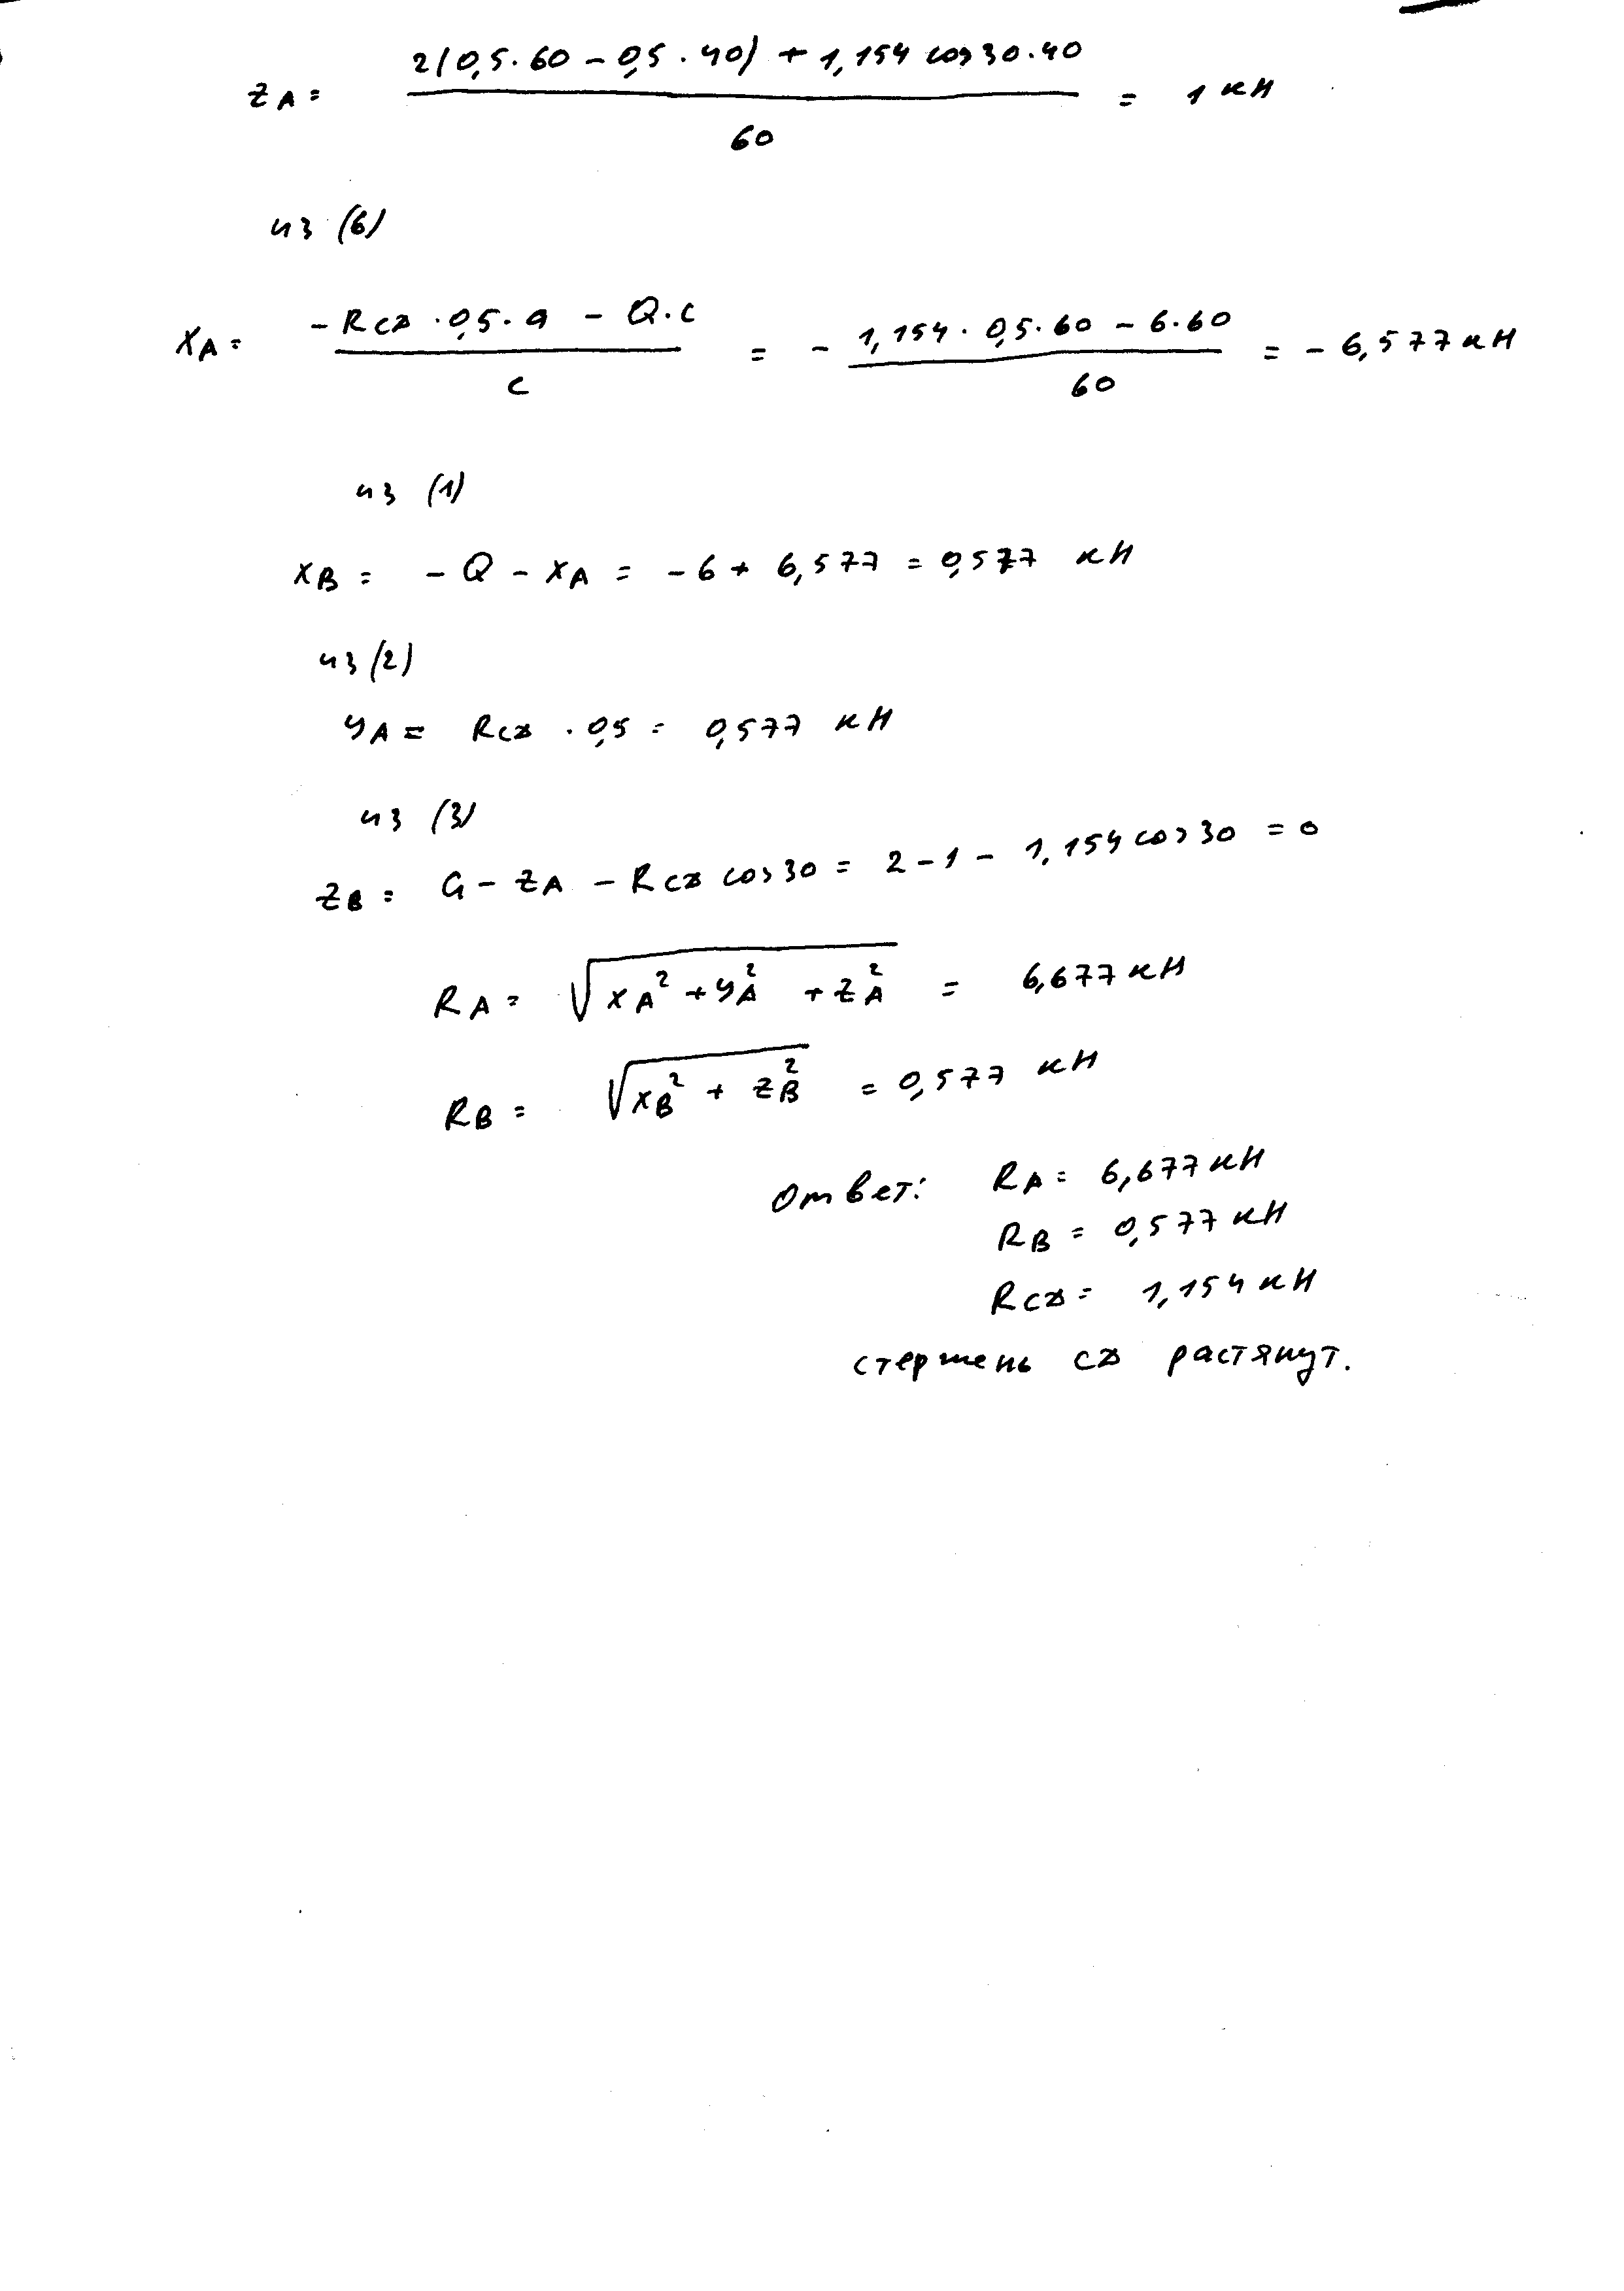 zA = (2(0,5·60 – 0,5·40) + 1,154 cos30·40) / 60 = 1 кН
из (6)
xA = (–RCD·0,5·a – Q·c) / c = – (1,154·0,5·60 – 6·60) / 60 = –6,577 кН
из (1)
xB = –Q – xA = –6 + 6,577 = 0,577 кН
из (2)
yA = RCD · 0,5 = 0,577 кН
из (3)
zB = G – zA – RCD cos30 = 2 – 1 – 1,154 cos30 = 0
RA = √(xA² + yA² + zA²) = 6,677 кН
RB = √(xB² + zB²) = 0,577 кН
Ответ: RA = 6,677 кН
RB = 0,577 кН
RCD = 1,154 кН
стержень CD растянут.